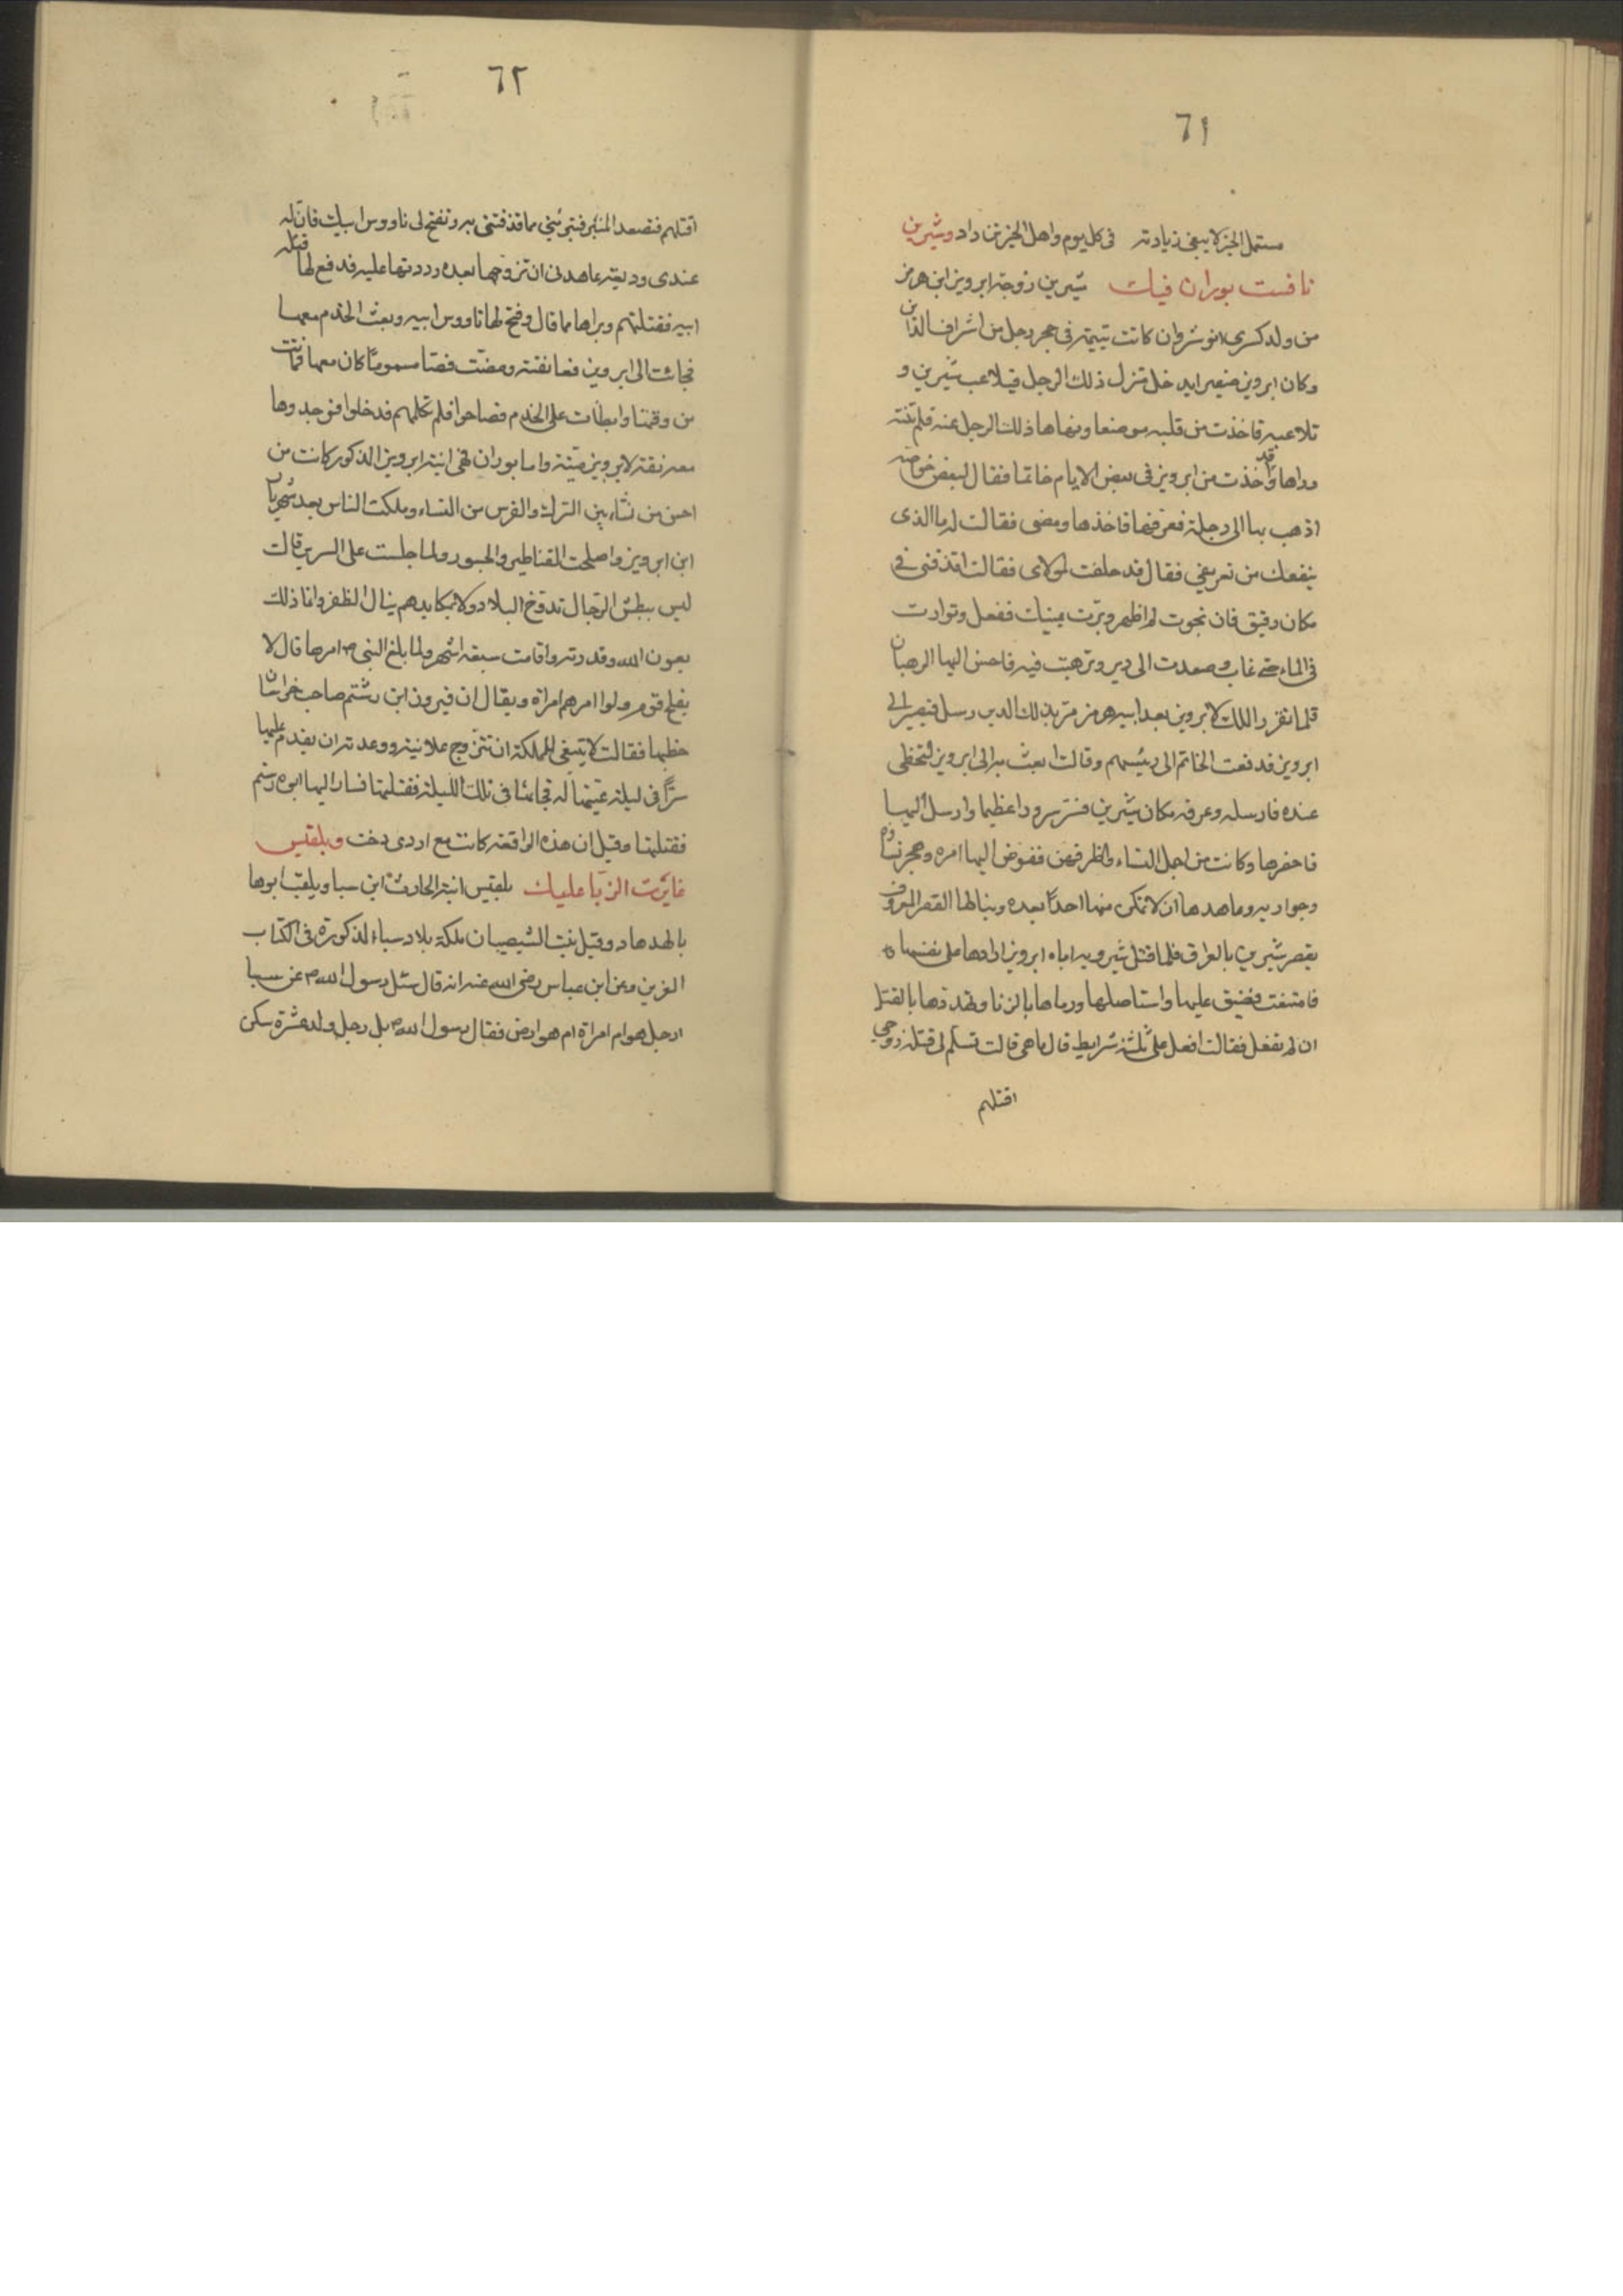 ٦١
مستهل الخير لا يبغى زيادته في كل يوم واهل الخير تزداد وشيرين
نافست بوران فيك شيرين زوجة ابرويز ابن هرمز
من ولد كسرى انوشروان كانت يتيمة في حجر رجل من اشراف المداين
وكان ابرويز صغيرا يدخل منزل ذلك الرجل فيلاعب شيرين و
تلاعبه فاخذت من قلبه موضعا ونهاها ذلك الرجل عنه فلم تنته
وراها وقد اخذت من ابرويز في بعض الايام خاتما فقال لبعض خواصه
اذهب بها الى دجلة فغرقها فاخذها ومضى فقالت له ما الذى
ينفعك من تغريقي فقال قد حلفت لمولاى فقالت اقذفنى في
مكان رقيق فان نجوت لم اظهر وبرّت يمينك ففعل وتوارت
في الماء حتى غاب وصعدت الى دير وترهبت فيه فاحسن اليها الرهبان
فلما تقرر الملك لابرويز بعد ابيه هرمز مر بذلك الدير رسل قيصر الى
ابرويز فدفعت الخاتم الى رئيسهم وقالت ابعث به الى ابرويز لتحظى
عنده فارسله وعرفه مكان شيرين فسر سرورا عظيما وارسل اليها
فاحضرها وكانت من اجمل النساء واظرفهن ففوض اليها امره وهجر نساؤه
وجواريه وعاهدها ان لا تمكن منها احدًا بعده وبنا لها القصر المعروف
بقصر شيرين بالعراق فلما قتل شيرويه اباه ابرويز ارادها على نفسها
فامتنعت فضيق عليها واستاصلها ورماها بالزنا وتهددها بالقتل
ان لم تفعل فقالت افعل على ثلثة شرايط قال ما هى قالت تسلم لى قتلة زوجي
اقتلهم
٦٢
اقتلهم فتصعد المنبر فتبرئني مما قذفتنى به وتفتح لى ناووس ابيك فان له
عندى وديعة عاهدنى ان تزوجها بعده رددتها عليه فدفع لها قتلة
ابيه فقتلتهم وبراها مما قال وفتح لها ناووس ابيه وبعث الخدم معها
فجائت الى ابرويز فعانقته ومصّت فصا مسموما كان معها فماتت
من وقتها وابطأت على الخدم فصاحوا فلم تكلمهم فدخلوا فوجدوها
معانقة لابرويز ميّتة واما بوران فهى ابنة ابرويز المذكور كانت من
احسن من نشاء بين الترك والفرس من النساء وملكت الناس بعد شهريار
ابن ابرويز واصلحت القناطير والجسور ولما جلست على السرير قالت
ليس ببطش الرّجال تدوّخ البلاد ولا بمكايدهم ينال الظفر وانما ذلك
بعون الله وقدرته واقامت سبعة اشهر ولما بلغ النبى ص امرها قال لا
يفلح قوم ولوا امرهم امراة ويقال ان فيروز ابن رستم صاحب خراسان
خطبها فقالت لا ينبغى للملكة ان تتزوج علانية ووعدته ان يقدم عليها
سرًّا في ليلة عيّنتها له فجائها في تلك الليلة فقتلته فسار اليها ابوه رستم
فقتلها وقيل ان هذه الواقعة كانت مع ازدى دخت وبلقيس
غايرت الزبّا عليك بلقيس ابنة الحارث ابن سبا ويلقب ابوها
بالهدهاد وقيل بنت الشيصبان ملكة بلاد سباء المذكورة في الكتاب
العزيز وعن ابن عباس رضى الله عنه انه قال سئل رسول الله ص عن سبا
ارجل هو ام امراة ام هو ارض فقال رسول الله ص بل رجل ولد عشرة سكن